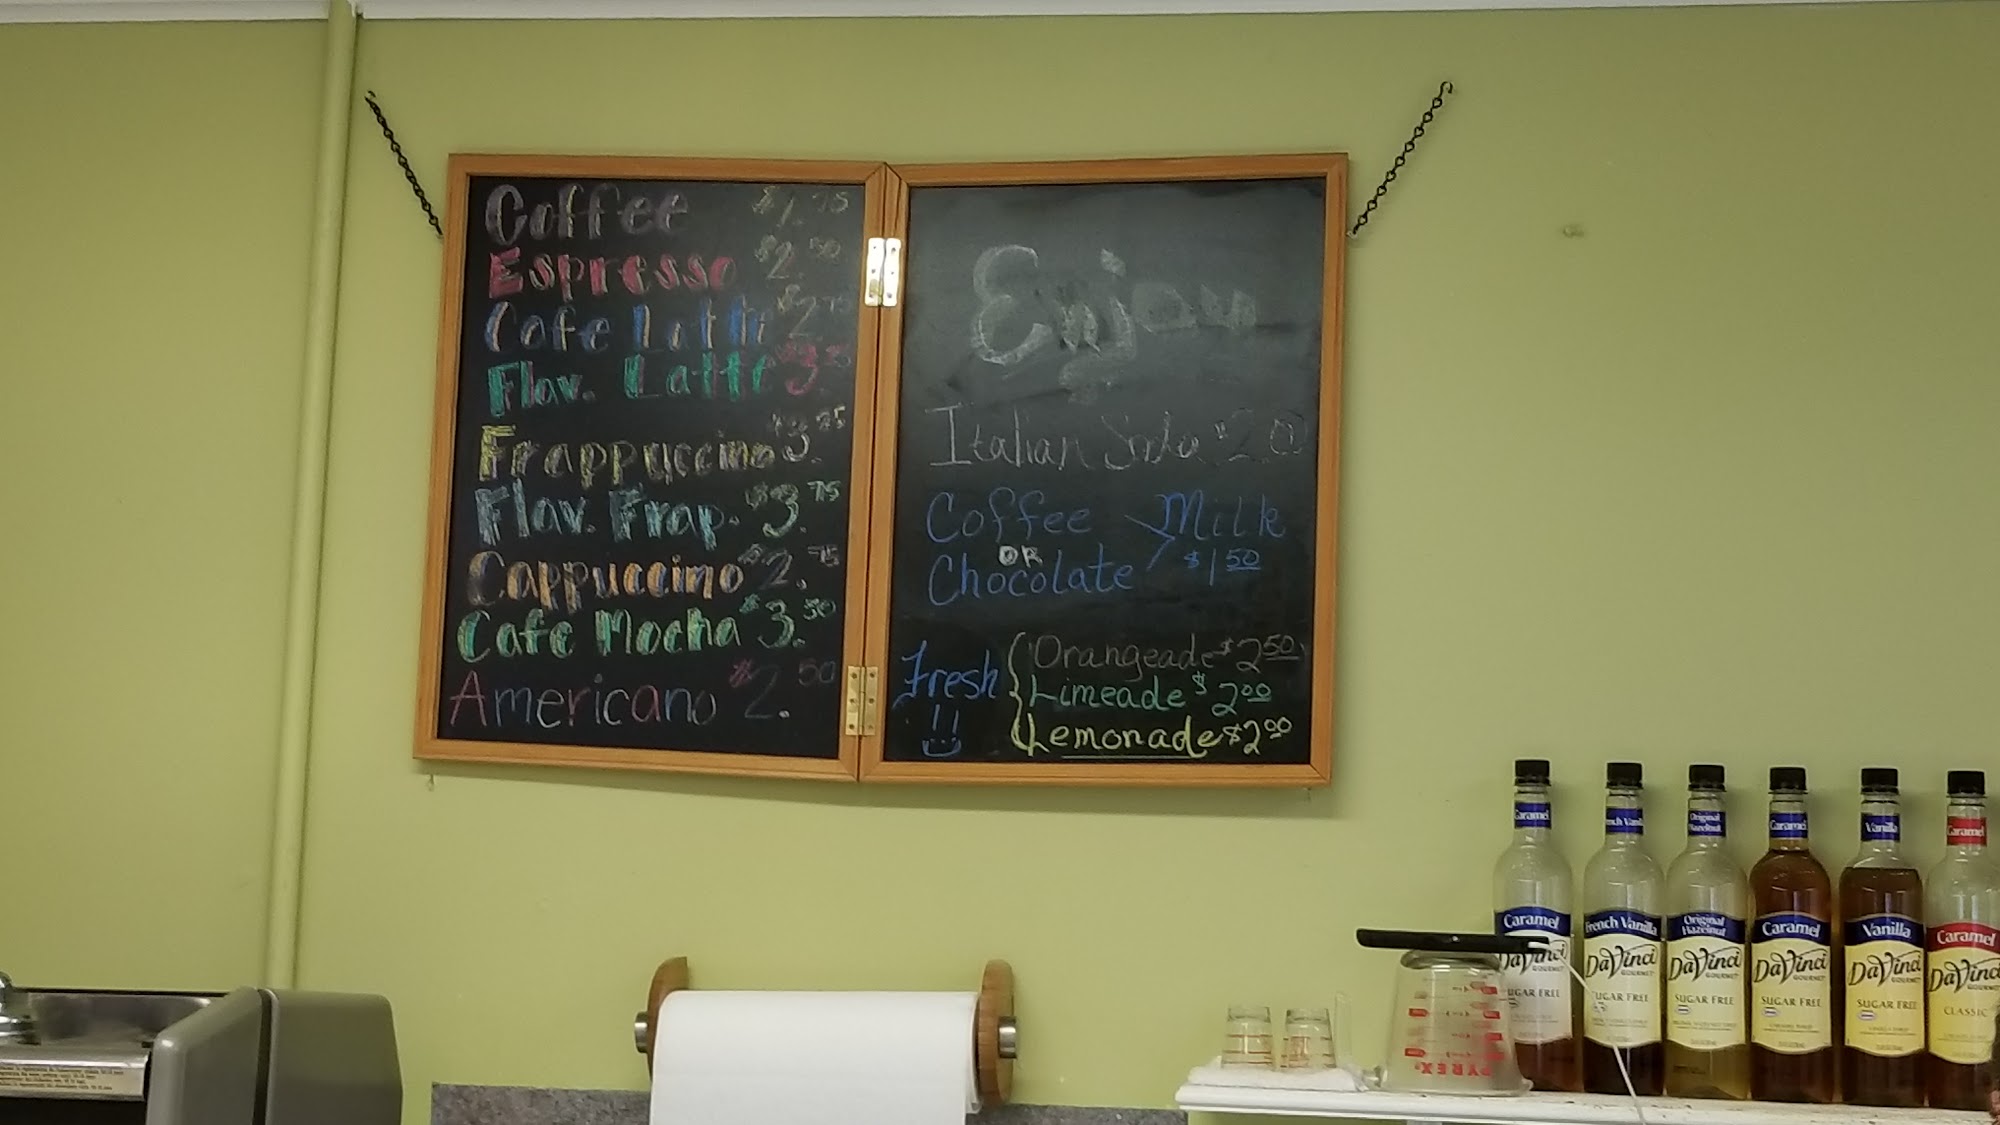 Coffee $1.75
Espresso $2.50
Cafe Latte $2.75
Flav. Latte $3.25
Frappuccino $3.25
Flav. Frap. $3.75
Cappuccino $2.75
Cafe Mocha $3.50
Americano $2.50
Enjoy
Italian Soda $2.00
Coffee Milk
OR
Chocolate $1.50
Fresh !!
Orangeade $2.50
Limeade $2.00
Lemonade $2.00
Caramel
French Vanilla
Original Hazelnut
Caramel
Vanilla
Caramel
Caramel
DaVinci
GOURMET
SUGAR FREE
French Vanilla
DaVinci
GOURMET
SUGAR FREE
Original
Hazelnut
DaVinci
GOURMET
SUGAR FREE
Caramel
DaVinci
GOURMET
SUGAR FREE
Vanilla
DaVinci
GOURMET
SUGAR FREE
Caramel
DaVinci
GOURMET
CLASSIC
PYREX